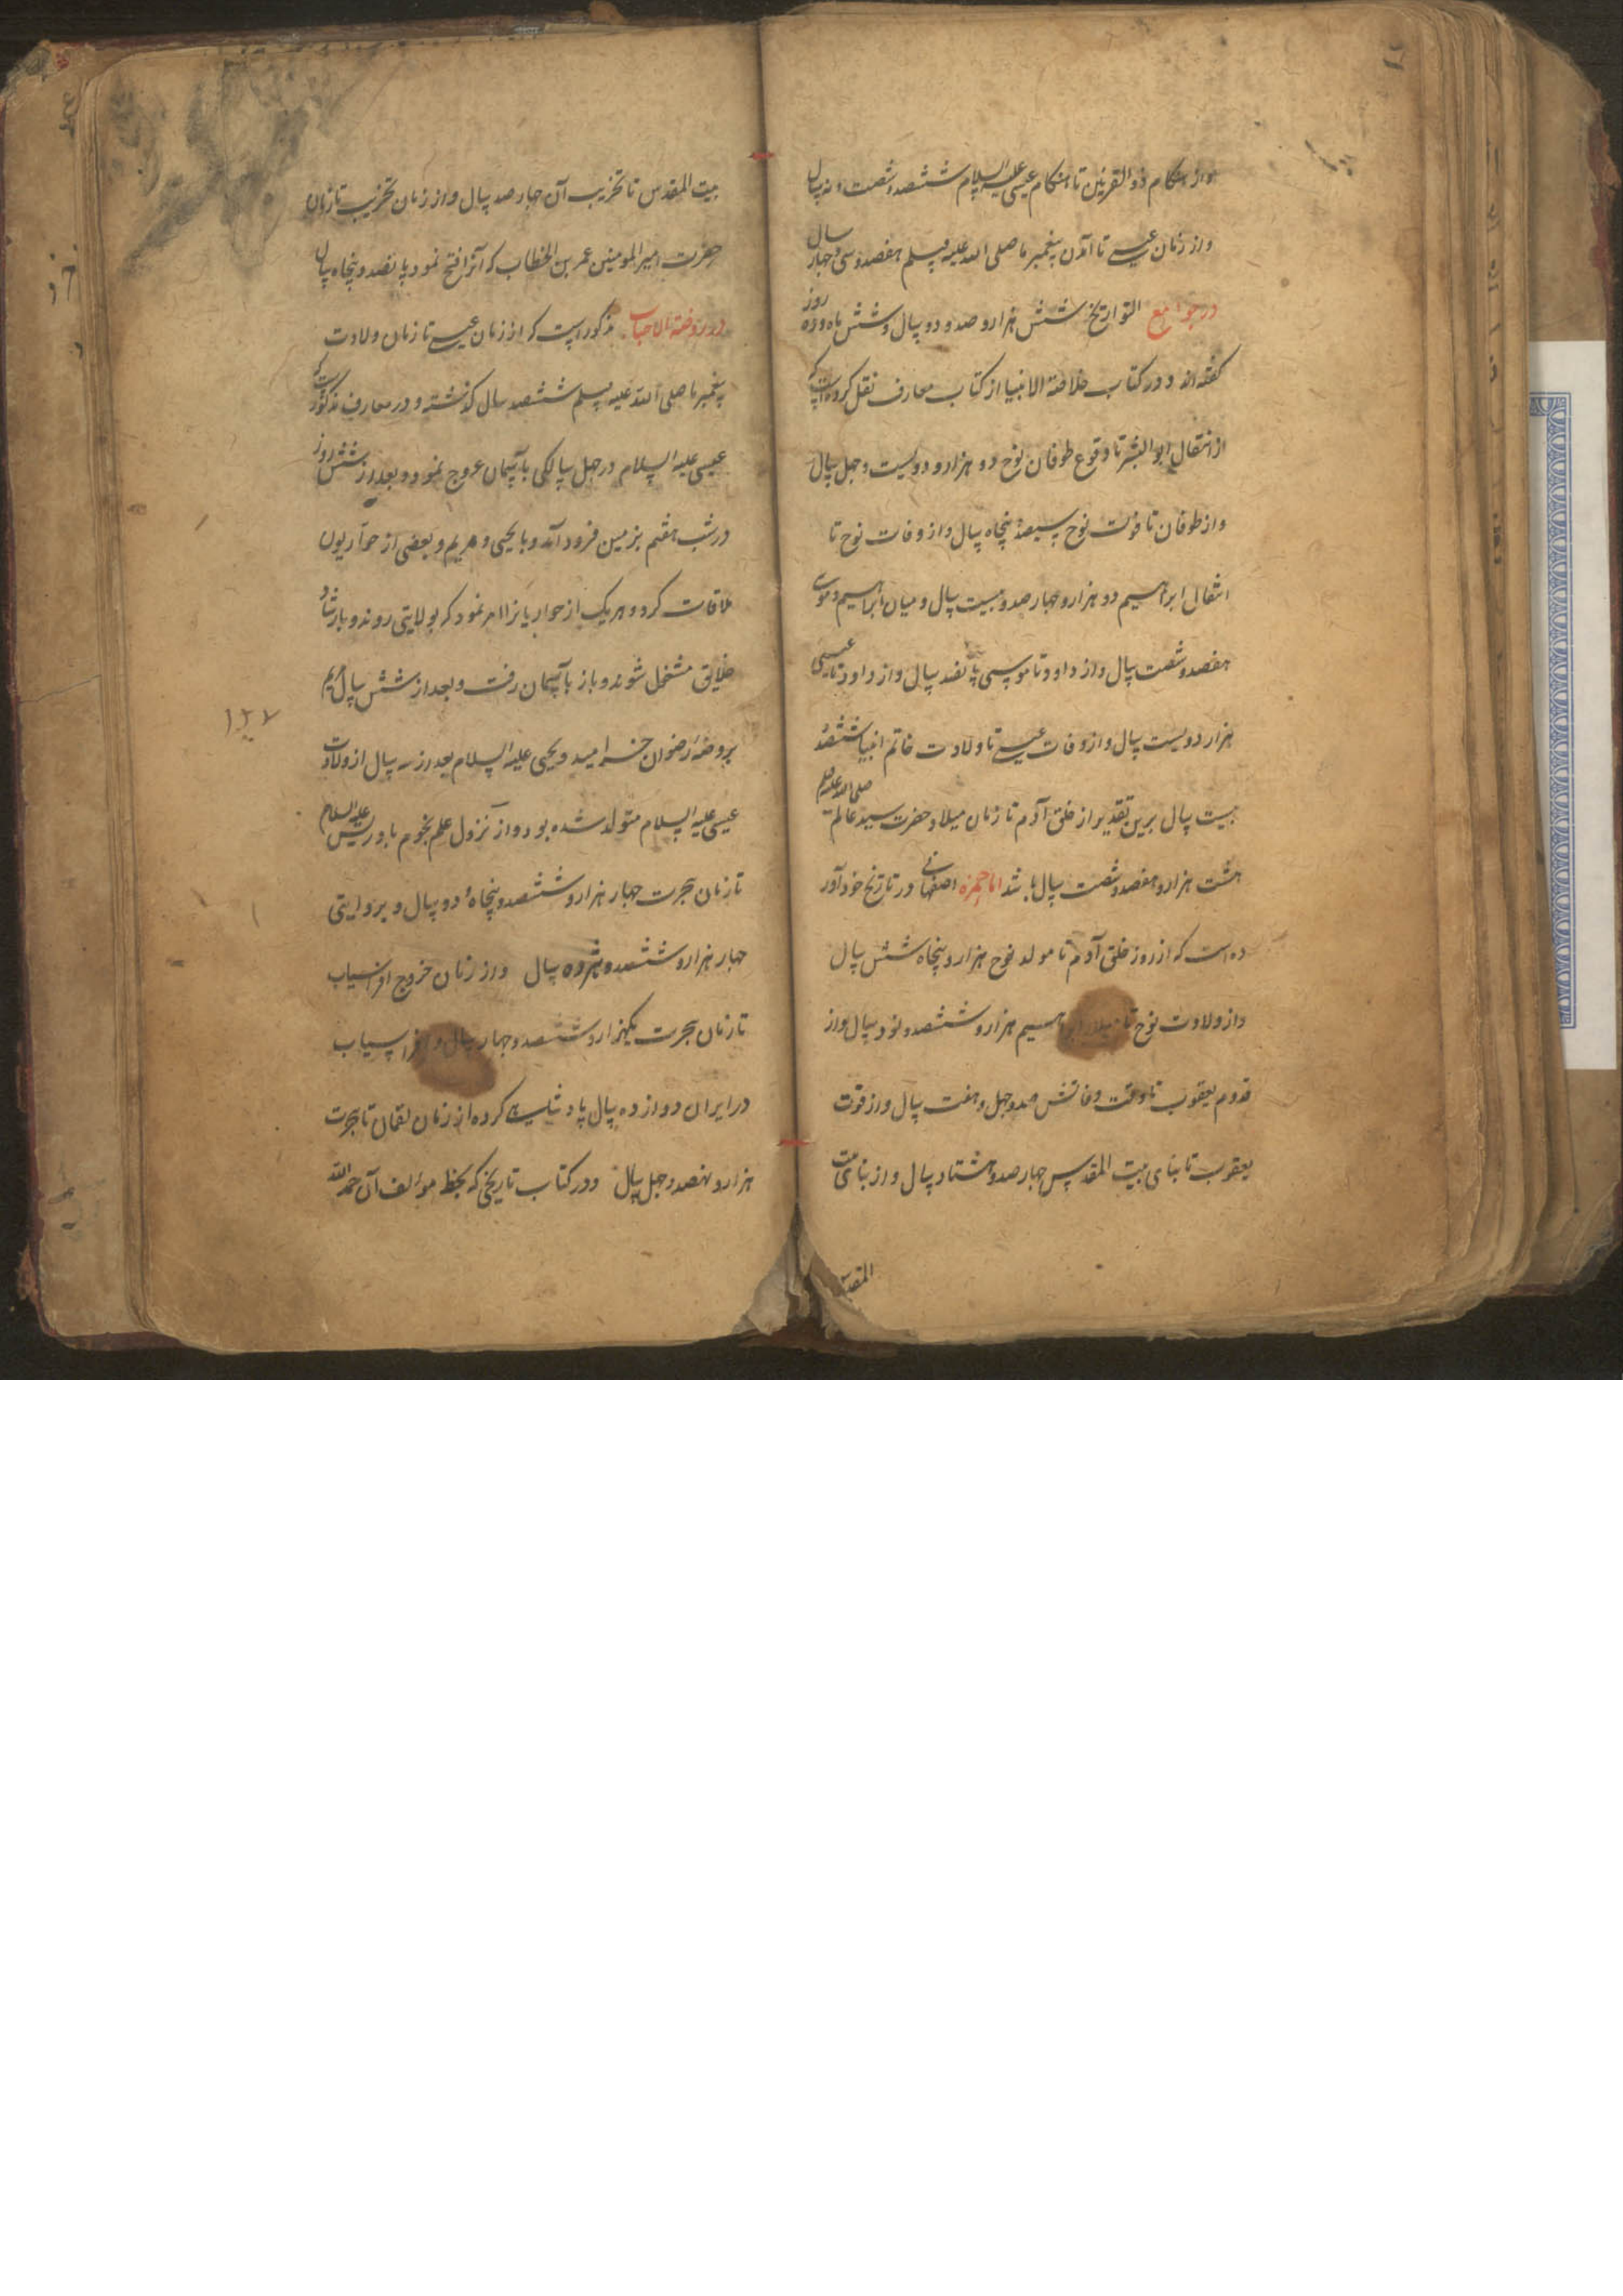 واز هنکام ذو القرنین تا هنکام عیسی علیه السلام ششصد و شصت اند سال
واز زمان عیسی تا آمدن پیغمبر ما صلی الله علیه وسلم هفصد و سی و چهار سال
در جوامع التواریخ شش هزار و صد و دو سال و شش ماه و ده روز
کفته اند و در کتاب خلاصة الانبیا از کتاب معارف نقل کرده است که
از انتقال ابو البشر تا وقوع طوفان نوح دو هزار و دویست و چهل سال
واز طوفان تا فوت نوح سیصد پنجاه سال واز وفات نوح تا
انتقال ابراهیم دو هزار و چهار صد و بیست سال و میان ابراهیم و موسی
هفصد و شصت سال واز داود تا موسی پانصد سال واز داود تا عیسی
هزار دویست سال واز وفات عیسی تا ولادت خاتم انبیا ششصد
بیست سال برین تقدیر از خلق آدم تا زمان میلاد حضرت سید عالم صلی الله علیه وسلم
هشت هزار و هفصد و شصت سال باشد اما حمزه اصفهانی در تاریخ خود آور
ده است که از روز خلق آدم تا مولد نوح هزار و پنجاه شش سال
واز ولادت نوح تا میلاد ابراهیم هزار و ششصد و نود سال واز
قدوم یعقوب تا وقت وفاتش صد و چهل و هفت سال واز فوت
یعقوب تا بنای بیت المقدس چهار صد و هشتاد سال واز بنای بیت
المقدس
بیت المقدس تا تخریب آن چهار صد سال واز زمان تخریب تا زمان
حضرت امیر المومنین عمر بن الخطاب که آنرا فتح نمود پانصد و پنجاه سال
در روضة الاحباب مذکور است که از زمان عیسی تا زمان ولادت
پیغمبر ما صلی الله علیه وسلم ششصد سال کذشته و در معارف مذکور است که
عیسی علیه السلام در چهل سالکی بآسمان عروج نمود و بعد از شش روز
در شب هفتم بزمین فرود آمد و با یحیی و مریم و بعضی از حواریون
ملاقات کرد و هر یک از حواریانرا امر نمود که بولایتی روند و بارشاد
خلایق مشتغل شوند و باز بآسمان رفت و بعد از شش سال مریم
۱۲۷
بروضهٔ رضوان خرامید و یحیی علیه السلام بعد از سه سال از ولادت
عیسی علیه السلام متولد شده بود واز نزول علم نجوم بادریس علیه السلام
تا زمان هجرت چهار هزار و ششصد و پنجاه و دو سال و بروایتی
چهار هزار و ششصد هژده سال واز زمان خروج افراسیاب
تا زمان هجرت یکهزار و ششصد و چهار سال و افراسیاب
در ایران دوازده سال پادشاهی کرده از زمان لقمان تا هجرت
هزار و نهصد و چهل سال و در کتاب تاریخی که بخط موالف آن حمد الله